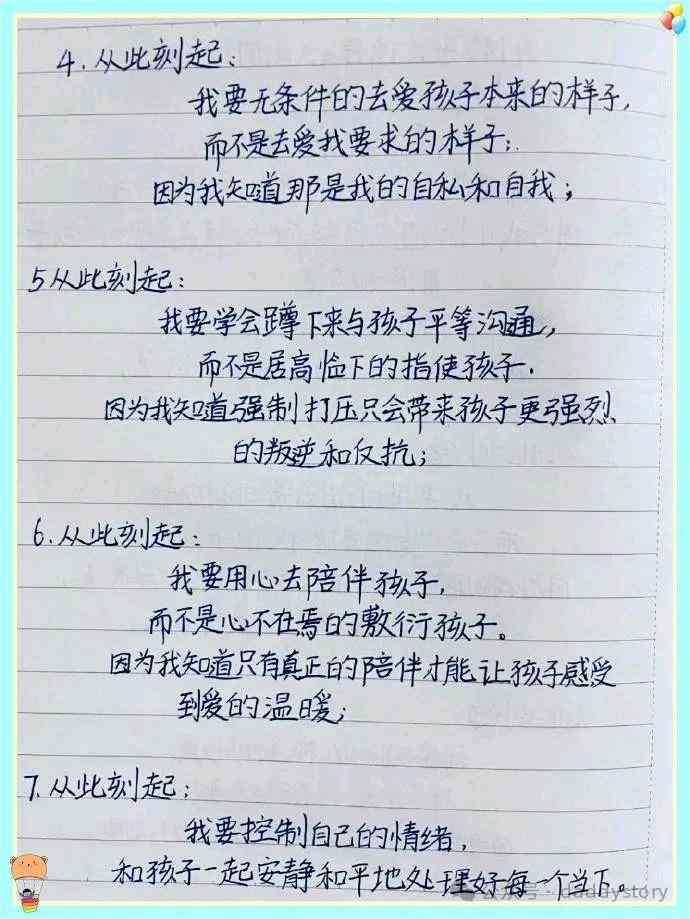 4.从此刻起:
我要无条件的去爱孩子本来的样子,
而不是去爱我要求的样子;
因为我知道那是我的自私和自我;
5从此刻起:
我要学会蹲下来与孩子平等沟通,
而不是居高临下的指使孩子.
因为我知道强制打压只会带来孩子更强烈
的叛逆和反抗;
6.从此刻起:
我要用心去陪伴孩子,
而不是心不在焉的敷衍孩子。
因为我知道只有真正的陪伴才能让孩子感受
到爱的温暖;
7.从此刻起:
我要控制自己的情绪,
和孩子一起安静和平地处理好每一个当下。
公众号·daddystory